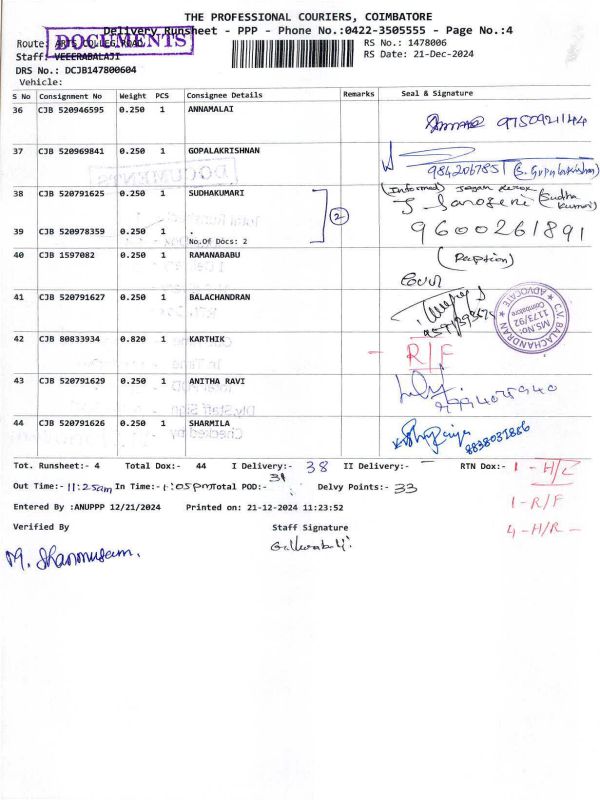 THE PROFESSIONAL COURIERS, COIMBATORE
Delivery Runsheet - PPP - Phone No.:0422-3505555 - Page No.:4
DOCUMENTS
Route: ARTS COLLEG ROAD
RS No.: 1478006
Staff: VEEERABALAJI
RS Date: 21-Dec-2024
DRS No.: DCJB147800604
Vehicle:
S No Consignment No Weight PCS Consignee Details Remarks Seal & Signature
36 CJB 520946595 0.250 1 ANNAMALAI 9750921144
37 CJB 520969841 0.250 1 GOPALAKRISHNAN
9842067851 (S. Gopalakrishnan)
38 CJB 520791625 0.250 1 SUDHAKUMARI (Informed)
J Sarogeni (Sudha Kumari)
39 CJB 520978359 0.250 1 . 2 9600261891
No.Of Docs: 2
40 CJB 1597082 0.250 1 RAMANABABU
41 CJB 520791627 0.250 1 BALACHANDRAN
C.V. BALACHANDRAN ADVOCATE
MS.No: 1173/92 Coimbatore
42 CJB 80833934 0.820 1 KARTHIK - R/F
43 CJB 520791629 0.250 1 ANITHA RAVI
44 CJB 520791626 0.250 1 SHARMILA 8838031886
Tot. Runsheet:- 4 Total Dox:- 44 I Delivery:- 38 II Delivery:- — RTN Dox:- 1 - H/C
Out Time:- 11:25am In Time:- 1:05pm Total POD:- 31 Delvy Points:- 33
1 - R/F
Entered By :ANUPPP 12/21/2024 Printed on: 21-12-2024 11:23:52
4 - H/R -
Verified By Staff Signature
M. Shanmugam.